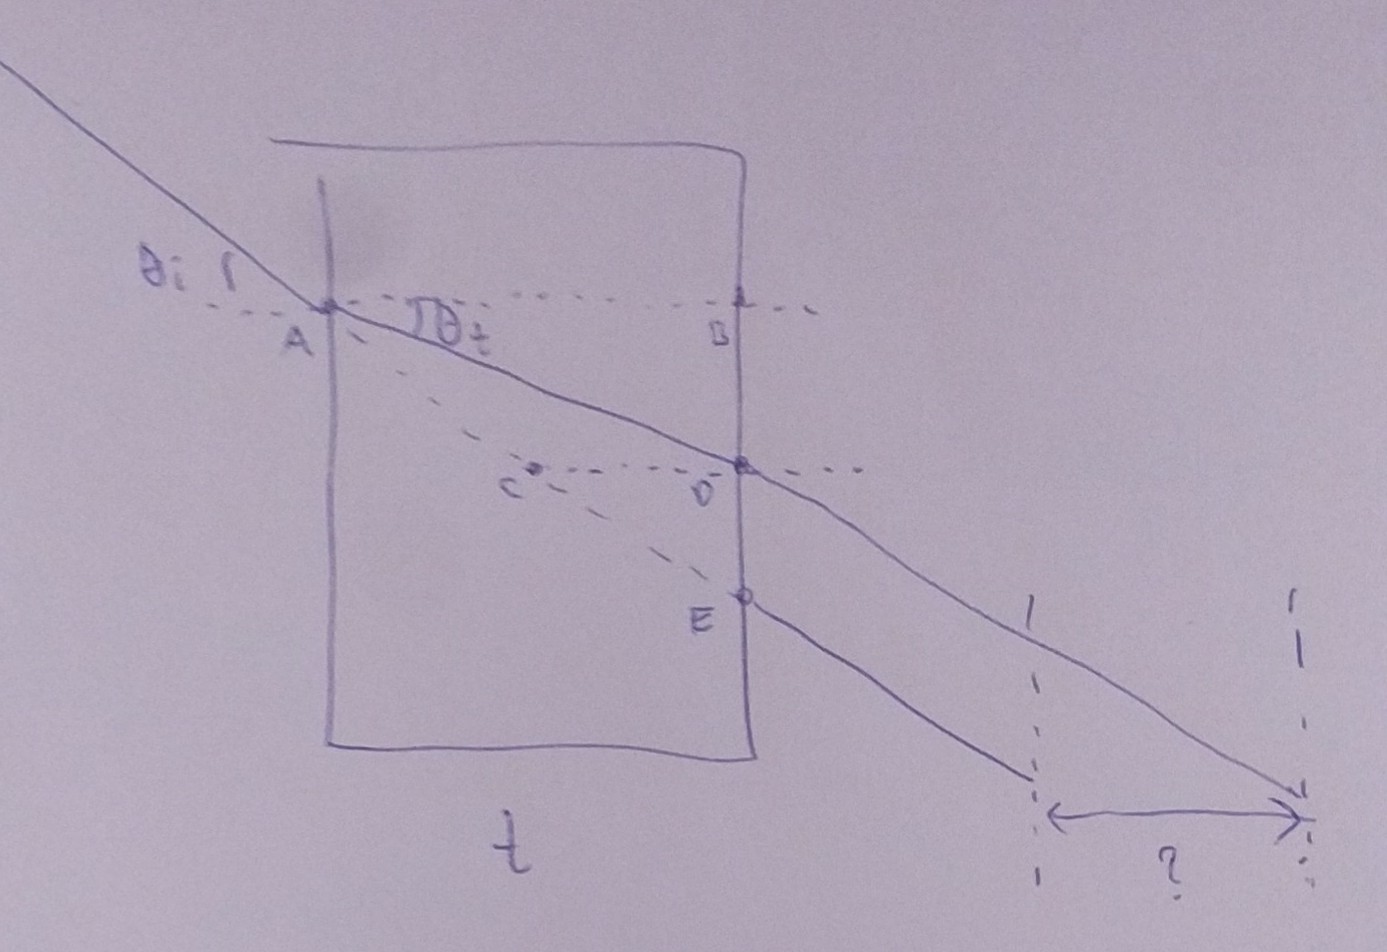 θi
A
θt
B
C
D
E
t
?